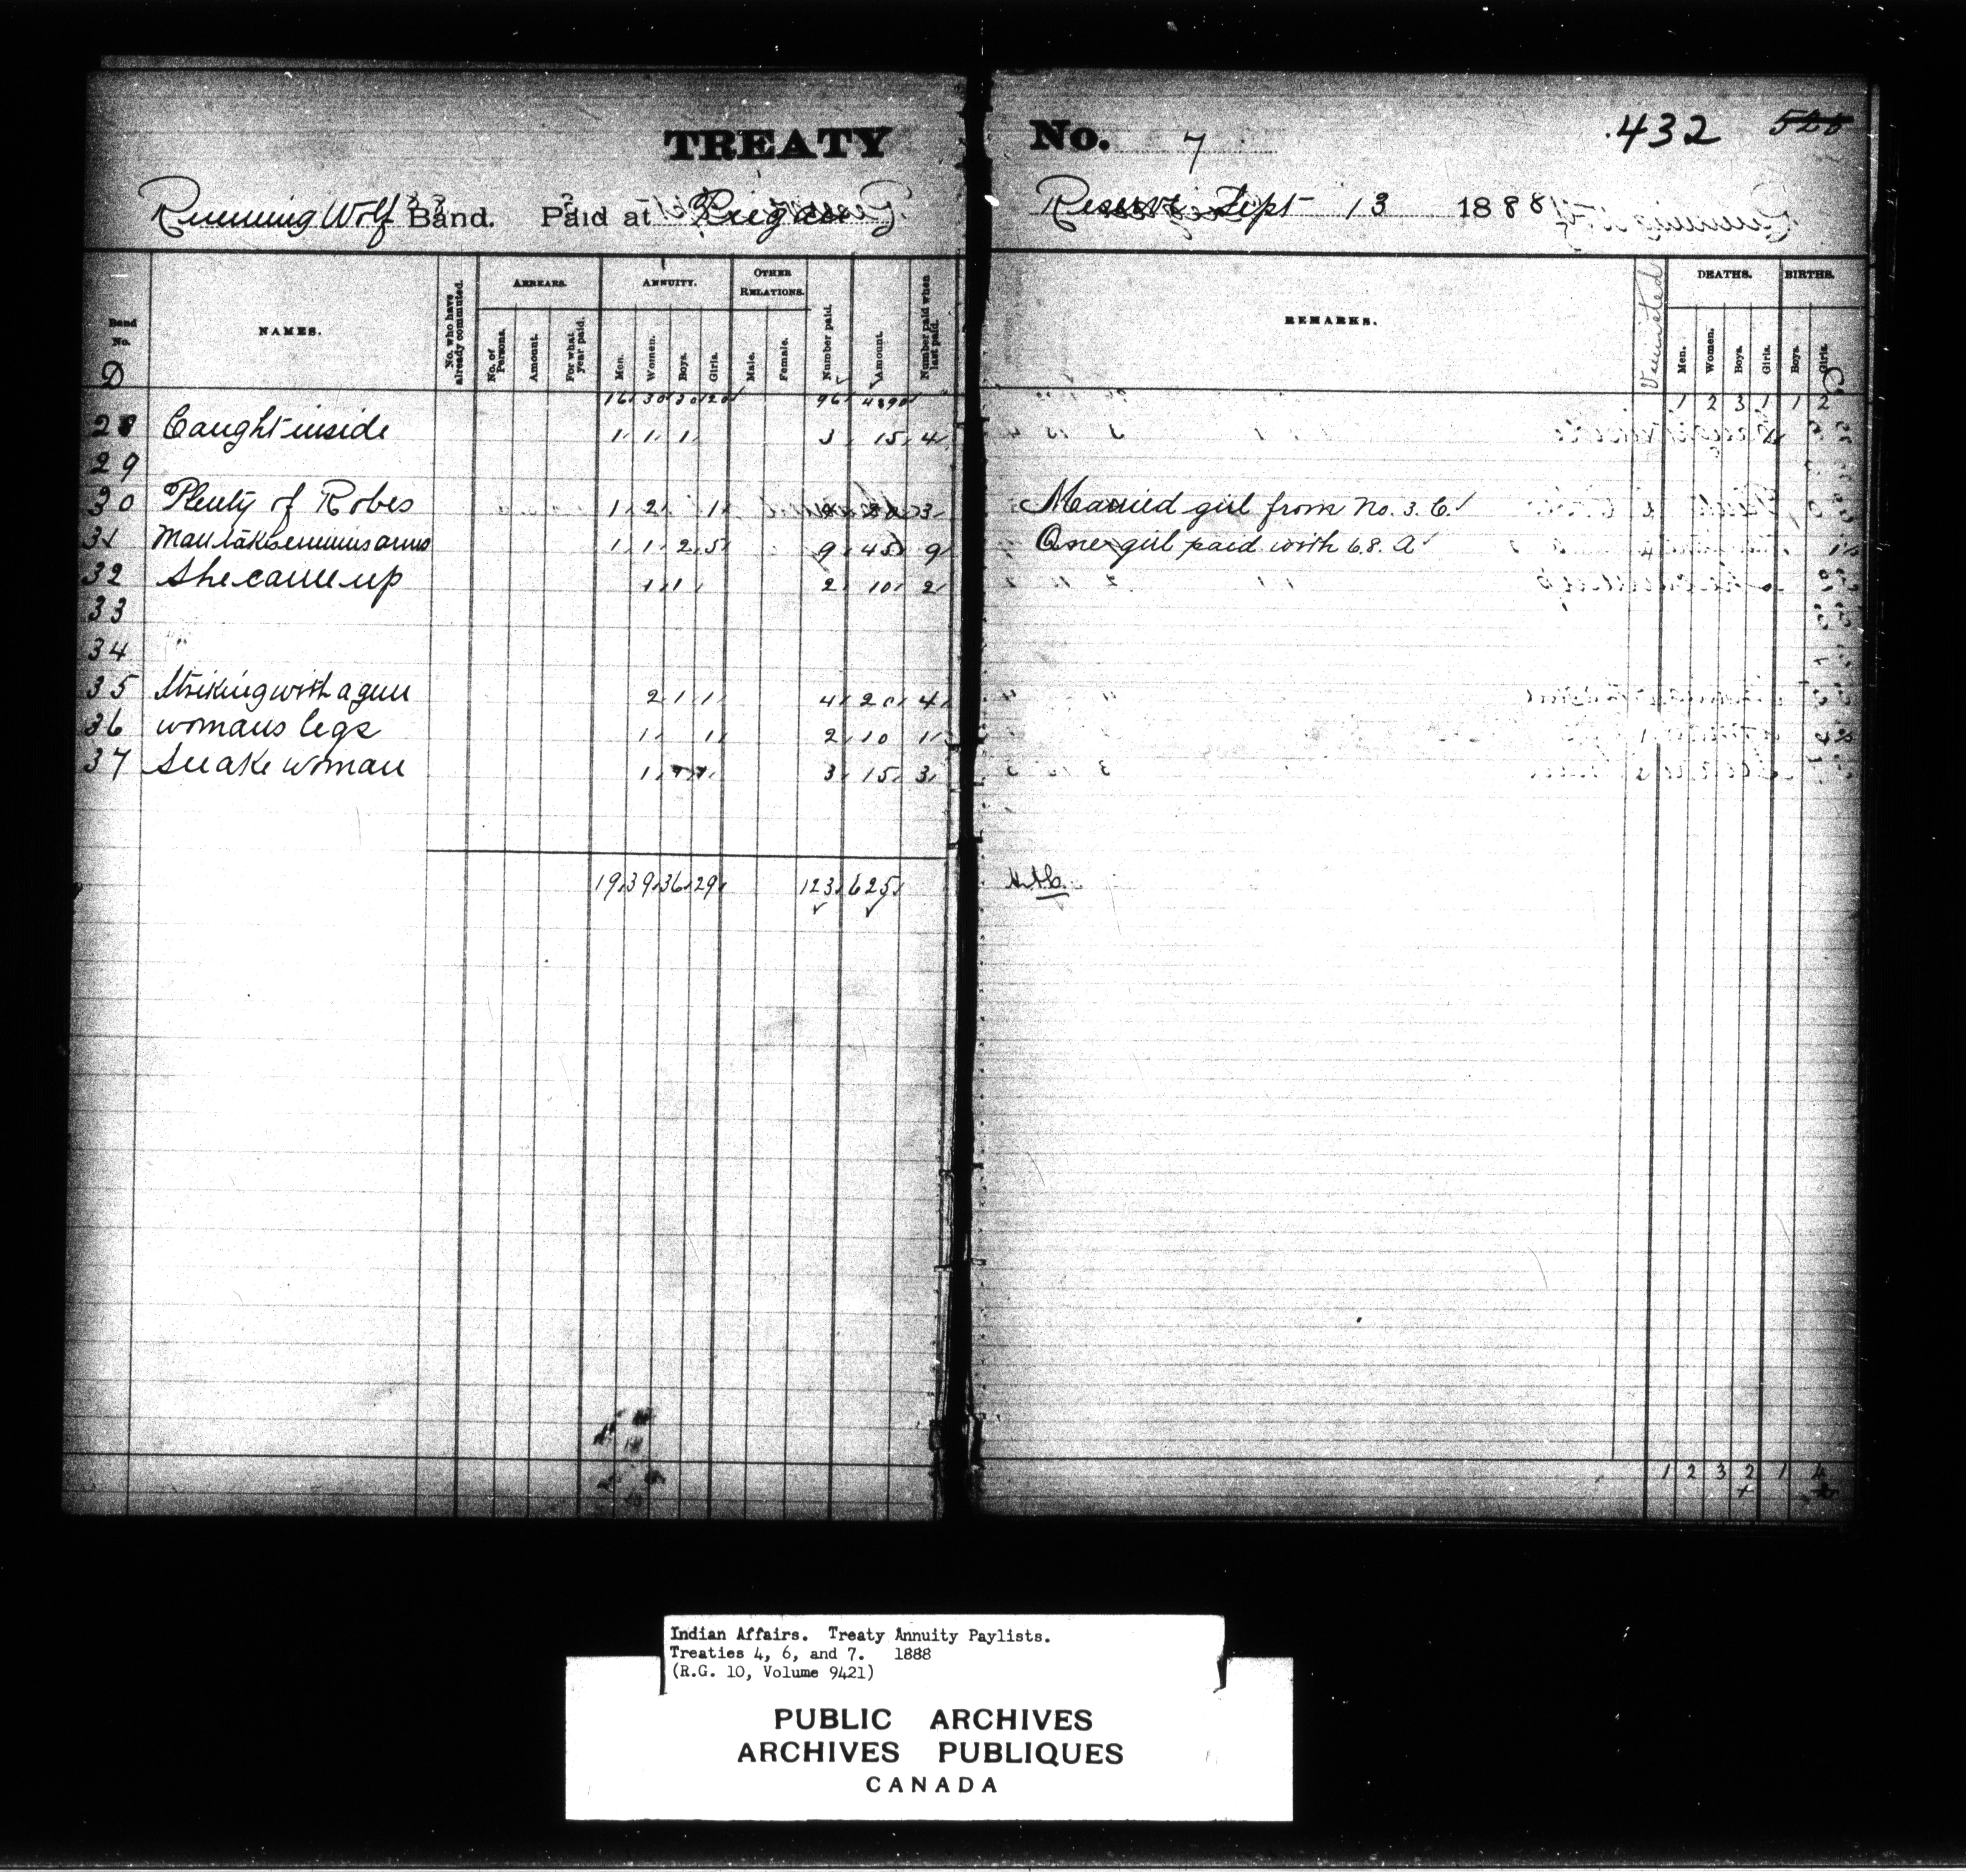 TREATY No. 7 432
Running Wolf Band. Paid at Piegan Reserve Sept 13 1888
Band No. NAMES. No. who have already commuted. ARREARS. ANNUITY. OTHER RELATIONS. Number paid. Amount. Number paid when last paid. REMARKS. Vaccinated DEATHS. BIRTHS.
No. of Persons. Amount. For what year paid. Men. Women. Boys. Girls. Male. Female. Men. Women. Boys. Girls. Boys. Girls.
D
16 30 30 20 96 1 2 3 1 1 2
28 Caught inside 1 1 1 3 15 4
29
30 Plenty of Robes 1 2 1 3 Married girl from No. 3. C.
31 Man takes enemies arms 1 1 2 5 9 45 9 One girl paid with 68. A
32 She came up 1 1 2 10 2
33
34
35 Striking with a gun 2 1 1 4 20 4
36 womans legs 1 1 2 10 1
37 Snake woman 1 3 15 3
19 39 36 29 123 625
1 2 3 2 1 4
Indian Affairs. Treaty Annuity Paylists.
Treaties 4, 6, and 7. 1888
(R.G. 10, Volume 9421)
PUBLIC ARCHIVES
ARCHIVES PUBLIQUES
CANADA